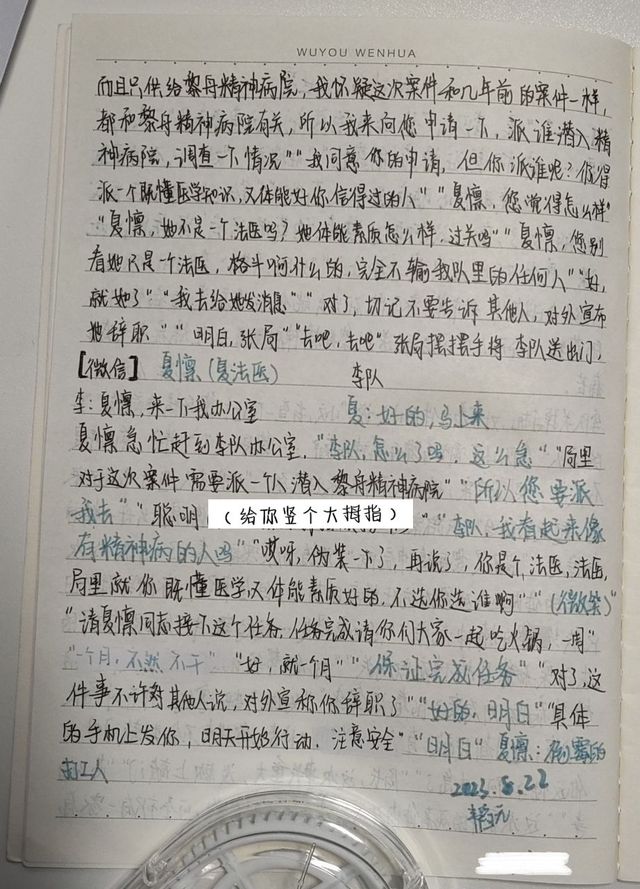 WUYOU WENHUA
而且只供给黎舟精神病院,我怀疑这次案件和几年前的案件一样,
都和黎舟精神病院有关,所以我来向您申请一下,派谁潜入精
神病院,调查一下情况""我同意你的申请,但你派谁呢?你得
派一个既懂医学知识,又体能好你信得过的人""夏憬,您觉得怎么样"
"夏憬,她不是一个法医吗?她体能素质怎么样,过关吗""夏憬,您别
看她只是一个法医,格斗啊什么的,完全不输我队里的任何人""好,
就她了""我去给她发消息""对了,切记不要告诉其他人,对外宣布
她辞职""明白,张局""去吧,去吧"张局摆摆手将李队送出门,
[微信] 夏憬(夏法医) 李队
李:夏憬,来一下我办公室 夏:好的,马上来
夏憬急忙赶到李队办公室,"李队,怎么了吗,这么急""局里
对于这次案件需要派一个人潜入黎舟精神病院""所以您要派
我去""聪明(给你竖个大拇指)""李队,我看起来像
有精神病的人吗""哎呀,伪装一下了,再说了,你是个法医,法医,
局里就你既懂医学又体能素质好的,不选你选谁啊""(微笑)"
"请夏憬同志接下这个任务,任务完成请你们大家一起吃火锅,一周"
"一个月,不然不干""好,就一个月""保证完成任务""对了,这
件事不许对其他人说,对外宣称你辞职了""好的,明白""具体
的手机上发你,明天开始行动.注意安全""明白"夏憬:倒霉的
打工人
2023.8.22